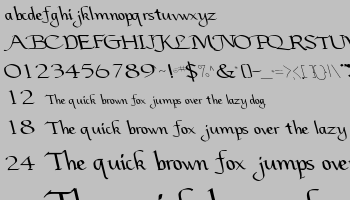 abcdefghijklmnopqrstuvwxyz
ABCDEFGHIJKLMNOPQRSTUV
0123456789
12 The quick brown fox jumps over the lazy dog
18 The quick brown fox jumps over the lazy
24 The quick brown fox jumps over